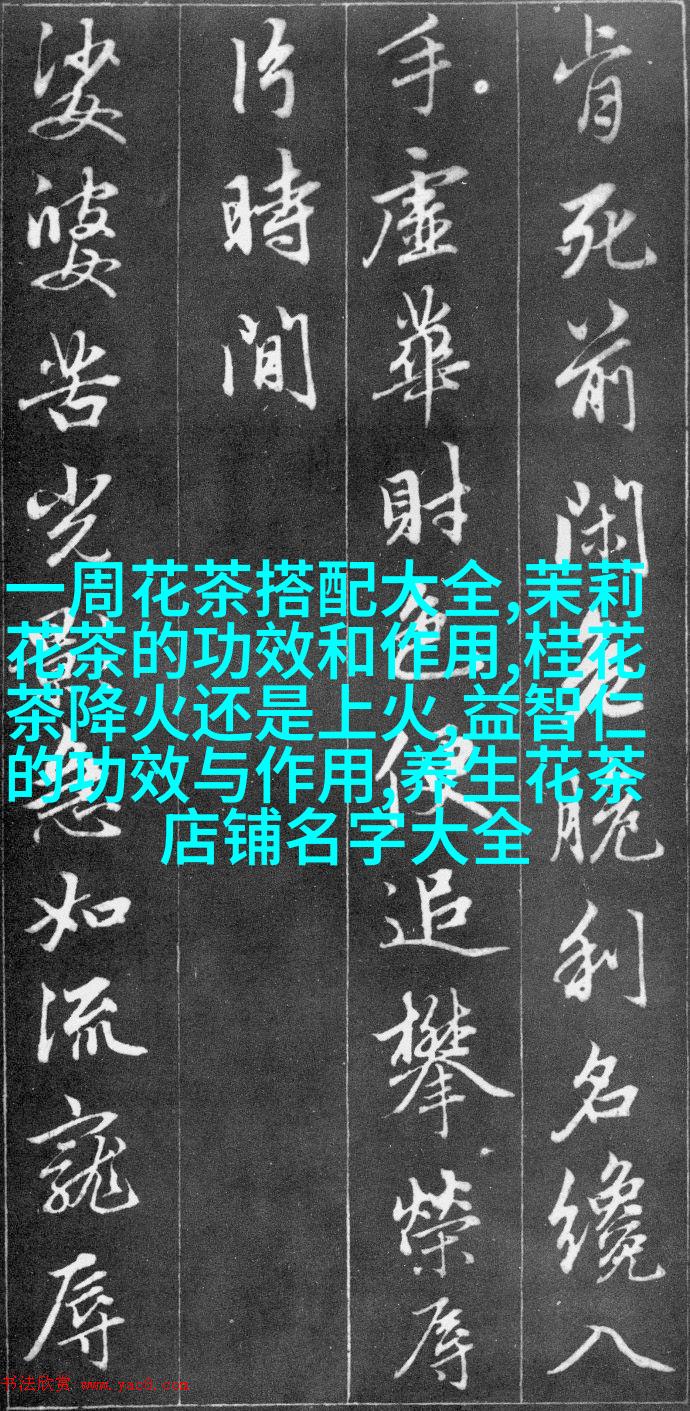 肯死前閑危脆利名纔入
手虛華財色便追攀榮辱
片時間
娑婆苦光影急如流寵辱
一周花茶搭配大全,茉莉
花茶的功效和作用,桂花
茶降火还是上火,益智仁
的功效与作用,养生花茶
店铺名字大全
书法欣赏 www.yac8.com